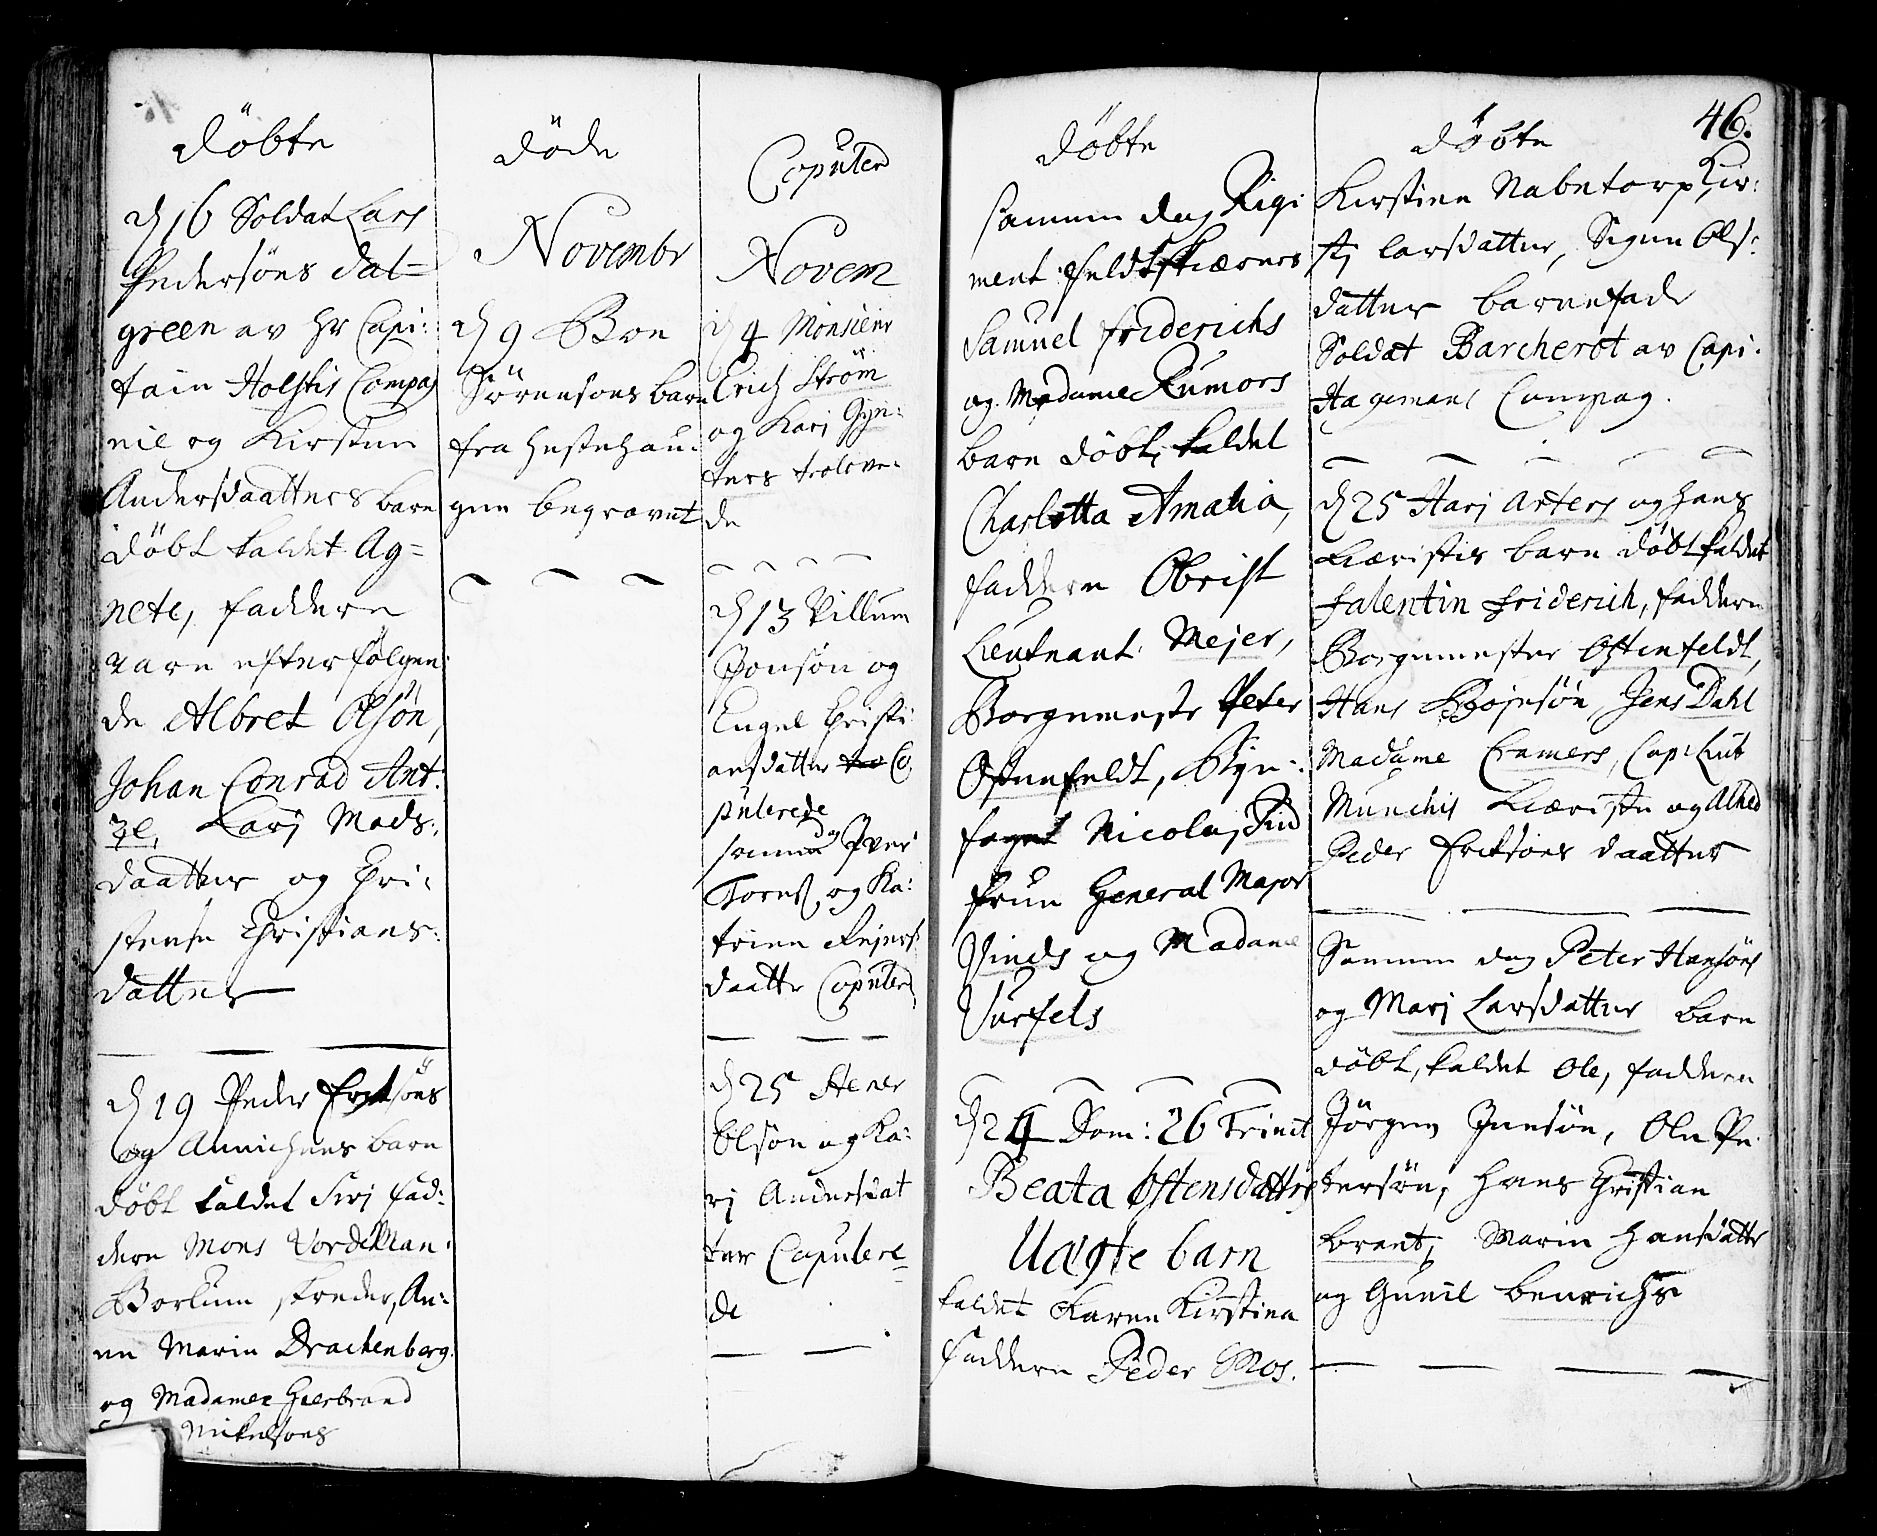 döbte
d 16 Soldat Lars
Pedersöns dat=
green av Hr Capi:
tain Holstis Compag
nie og Kirsten
Andersdaatters barn
döbt kaldet Ag=
nete, faddere
vare efterfölgen:
de Albret Olsön,
Johan Conrad Ant:
ze, Karj Mads:
daatter og Chri:
stense Christians:
datter
d 19 Peder Ericksöns
og Annichens barn
döbt kaldet Sirj fad:
dere Mons Vordekman
Borlum skreder, An:
ne Marie Drachenberg.
og Madame Hilbrand
Mickelsöns
döde
Novembr
d 9 Boe
Sörensöns barn
fra Hestehau:
gen begravet
Copulered
Novem
d 4 Monsieur
Erich Ström
og Karj Gyn:
ters trolove:
de
d 13 Villum
Joensön og
Engel Christi
ansdatter tro Co
pulerede
samme dag Iver
Torns og Ka:
trine Rejers:
daatter Copulered
d 25 Stener
Olsön og Ka:
rj Andersdat
ter Copulere
de
46.
döbte
samme dag Rigi
ment feldtskiærers
Samuel friderichs
og Madame Rumors
barn döbt, kaldet
Charlotta Amalia,
faddere Obrist
Lieutnant Mejer,
Borgemestr Peter
Ostenfeldt, Byn:
foget Nicolaj Find
fruen General Major
Vinds og Madame
Vurfels
d 24 Dom: 26 Trinit
Beata Ostensdatters
Uægte barn
kaldet Karen Kirstina
faddere Peder Mos.
döbte
Kirstine Nabentorp, Kir:
stj larsdatter, Signe Ols:
datter barnefader
Soldat Barcherot av Capi.
Hagemans Compag.
d 25 Harj Arters og Hans
Kieristis barn döbt kaldet
falentin friderich, faddere
Borgemester Ostenfeldt,
Hans Bojesön, Jens Dahl
Madame Cramers, Cap: Leut
Munchis Kieriste og Alhed
Peder Ericksöns daatter
Samme dag Peter Hansöns
og Marj Larsdatter barn
döbt, kaldet Ole, faddere
Jörgen Jensön, Ole Pe
dersön, Hans Christian
brant, Maren Hansdatter
og Gunil benrichs